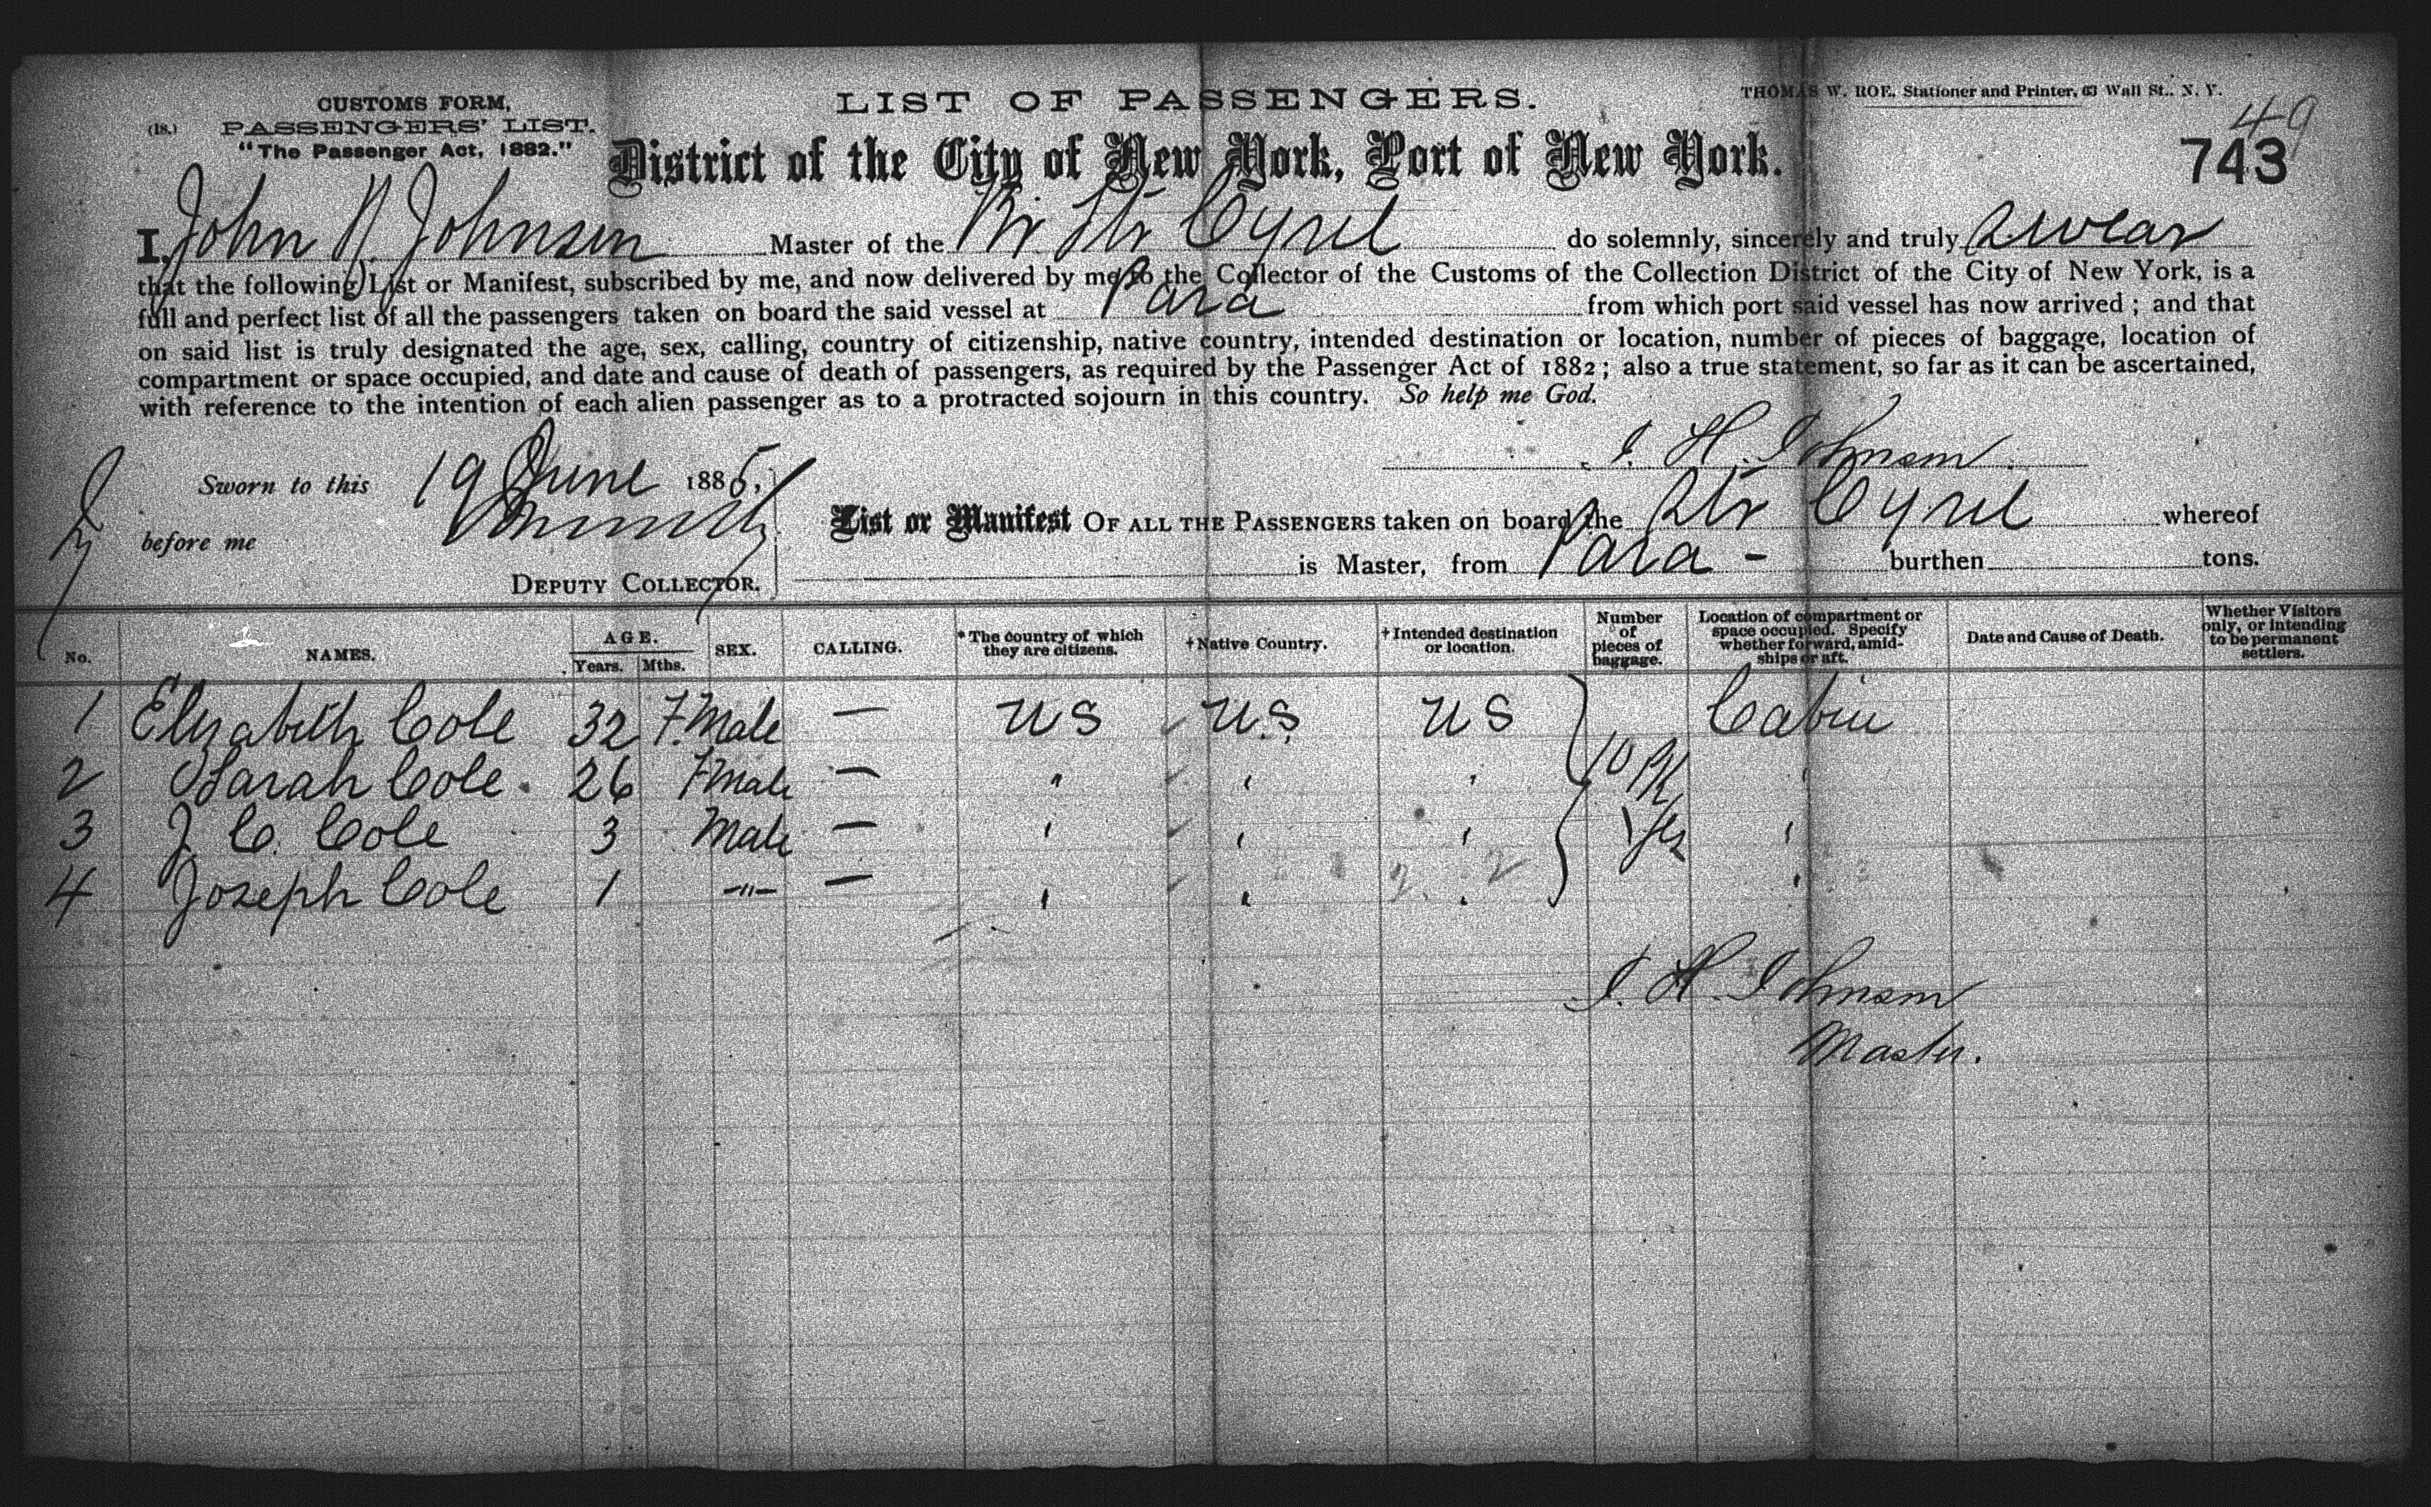 CUSTOMS FORM,
(18.) PASSENGERS' LIST.
"The Passenger Act, 1882."
LIST OF PASSENGERS.
THOMAS W. ROE, Stationer and Printer, 63 Wall St., N. Y.
49
743
District of the City of New York, Port of New York.
I, John N Johnson Master of the Br Str Cyril do solemnly, sincerely and truly swear
that the following List or Manifest, subscribed by me, and now delivered by me to the Collector of the Customs of the Collection District of the City of New York, is a
full and perfect list of all the passengers taken on board the said vessel at Para from which port said vessel has now arrived; and that
on said list is truly designated the age, sex, calling, country of citizenship, native country, intended destination or location, number of pieces of baggage, location of
compartment or space occupied, and date and cause of death of passengers, as required by the Passenger Act of 1882; also a true statement, so far as it can be ascertained,
with reference to the intention of each alien passenger as to a protracted sojourn in this country. So help me God.
J. H. Johnson
Sworn to this 19 June 1885,
before me
DEPUTY COLLECTOR.
List or Manifest OF ALL THE PASSENGERS taken on board the Str Cyril whereof
is Master, from Para - burthen tons.
No. NAMES. AGE. Years. Mths. SEX. CALLING. *The country of which they are citizens. †Native Country. †Intended destination or location. Number of pieces of baggage. Location of compartment or space occupied. Specify whether forward, amidships or aft. Date and Cause of Death. Whether Visitors only, or intending to be permanent settlers.
1 Elizabeth Cole 32 F.Male — US U.S. US Cabin
2 Sarah Cole. 26 Fmale — " " " 10 Pk "
3 J. C. Cole 3 Male — " " " "
4 Joseph Cole 1 -"- — " " " "
2. 2
J. H. Johnson
Master.